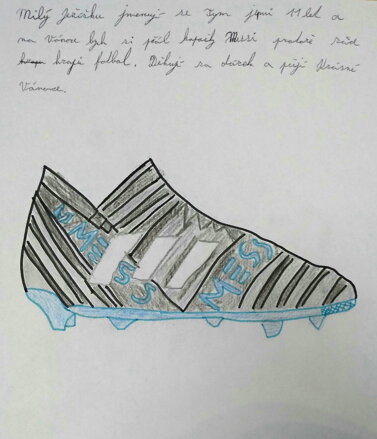 Milý Ježíšku jmenuji se Tým jsem 11 let a
na Vánoce bych si přál kopačky Messi protože rád
hraji fotbal. Děkuji za dárek a přeji Krásné
Vánoce.
MESSI